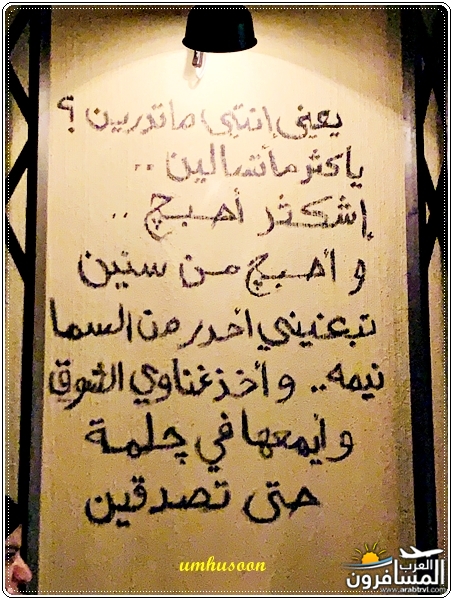 يعني إنتي ماتدرين ؟
ياكثر ماتسألين ..
إشكثر أحبچ ..
و أحبچ من سنين
تبعنيني أحدر من السما
نيمه.. و أخذ غناوي الشوق
و أيمعها في چلمة
حتى تصدقين
umhusoon
العرب
المسافرون
www.arabtrvl.com